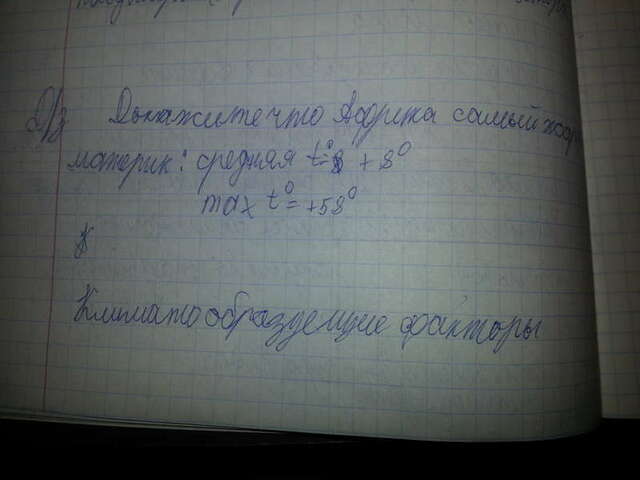 Д/з Докажите что Африка самый жарк
материк: средняя t°= +8°
max t°= +58°
К
Климатообразующие факторы